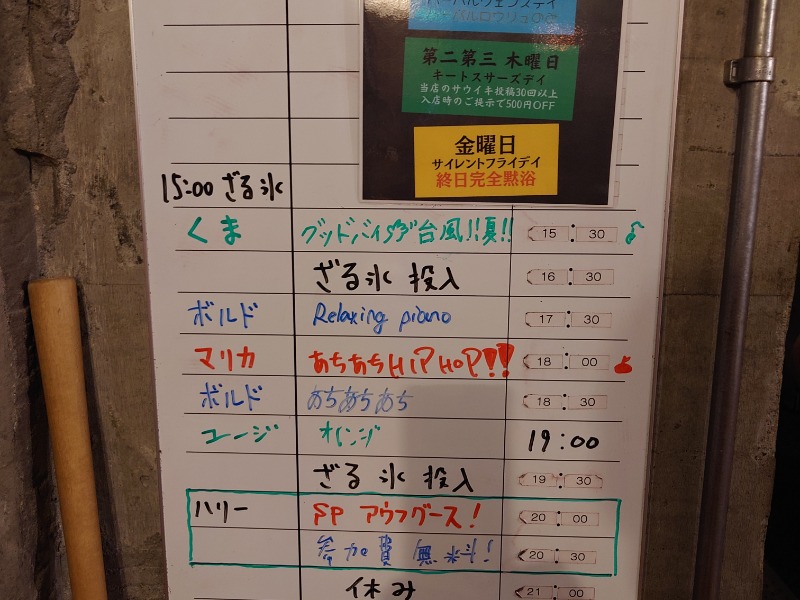 ハーバルウェンズデイ
第二第三 木曜日
キートスサーズデイ
当店のサウイキ投稿30回以上
入店時のご提示で500円OFF
金曜日
サイレントフライデイ
終日完全黙浴
15:00 ざる氷
くま グッドバイ 台風!!夏!! 15:30
ざる氷 投入 16:30
ボルド Relaxing piano 17:30
マリカ あちあちHIPHOP!! 18:00
ボルド あちあちあち 18:30
コージ オレンジ 19:00
ざる氷 投入 19:30
ハリー SP アウフグース! 20:00
参加費無料! 20:30
休み 21:00